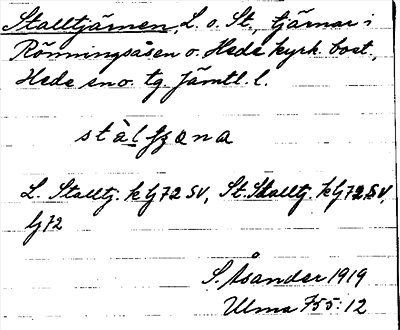 Stalltjärnen, L. o. St., tjärnar i
Rönningsåsen o. Hede kyrk. bost.,
Hede sn o. tg. Jämtl. l.
L. Stalltj. k lj 72 SV, St. Stalltj. k lj 72 SV,
lj 72
S. Åsander 1919
Ulma 755:12